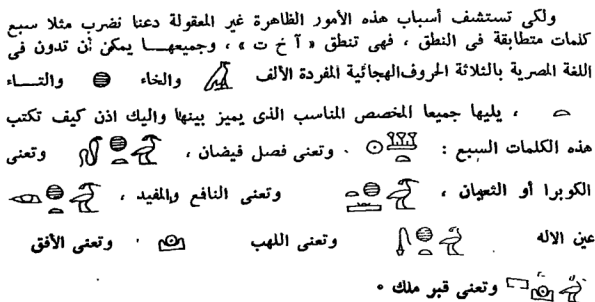 ولكى تستشف أسباب هذه الأمور الظاهرة غير المعقولة دعنا نضرب مثلا سبع
كلمات متطابقة فى النطق ، فهى تنطق « آ خ ت » ، وجميعهـــا يمكن أن تدون فى
اللغة المصرية بالثلاثة الحروف الهجائية المفردة الألف 𓄿 والخاء 𓐍 والتـــاء
𓏏 ، يليها جميعا المخصص المناسب الذى يميز بينها واليك اذن كيف تكتب
هذه الكلمات السبع : وتعنى فصل فيضان ، وتعنى
الكوبرا أو الثعبان ، وتعنى النافع والمفيد ،
عين الاله وتعنى اللهب وتعنى الأفق
وتعنى قبر ملك •